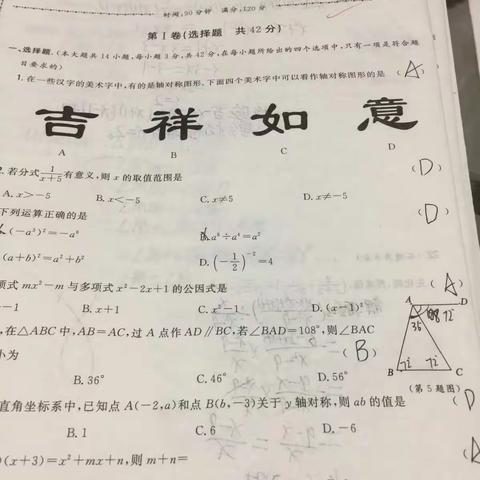 时间:90分钟 满分:120分
第Ⅰ卷(选择题 共42分)
一、选择题.(本大题共14小题,每小题3分,共42分,在每小题所给出的四个选项中,只有一项是符合题
目要求的)
1.在一些汉字的美术字中,有的是轴对称图形.下面四个美术字中可以看作轴对称图形的是 (A)
吉 祥 如 意
A B C D
2.若分式1/(x+5)有意义,则x的取值范围是 (D)
A.x>-5 B.x<-5 C.x≠5 D.x≠-5
下列运算正确的是 (D)
(-a³)²=-a⁶ B.a⁸÷a⁴=a²
(a+b)²=a²+b² D.(-1/2)⁻²=4
项式mx²-m与多项式x²-2x+1的公因式是 (A)
-1 B.x+1 C.x²-1 D.(x-1)²
,在△ABC中,AB=AC,过A点作AD∥BC,若∠BAD=108°,则∠BAC
小为 (B)
B.36° C.46° D.56°
A D
36 108 72
72 72
B C
(第5题图)
直角坐标系中,已知点A(-2,a)和点B(b,-3)关于y轴对称,则ab的值是 (D
B.1 C.6 D.-6
)(x+3)=x²+mx+n,则m+n=